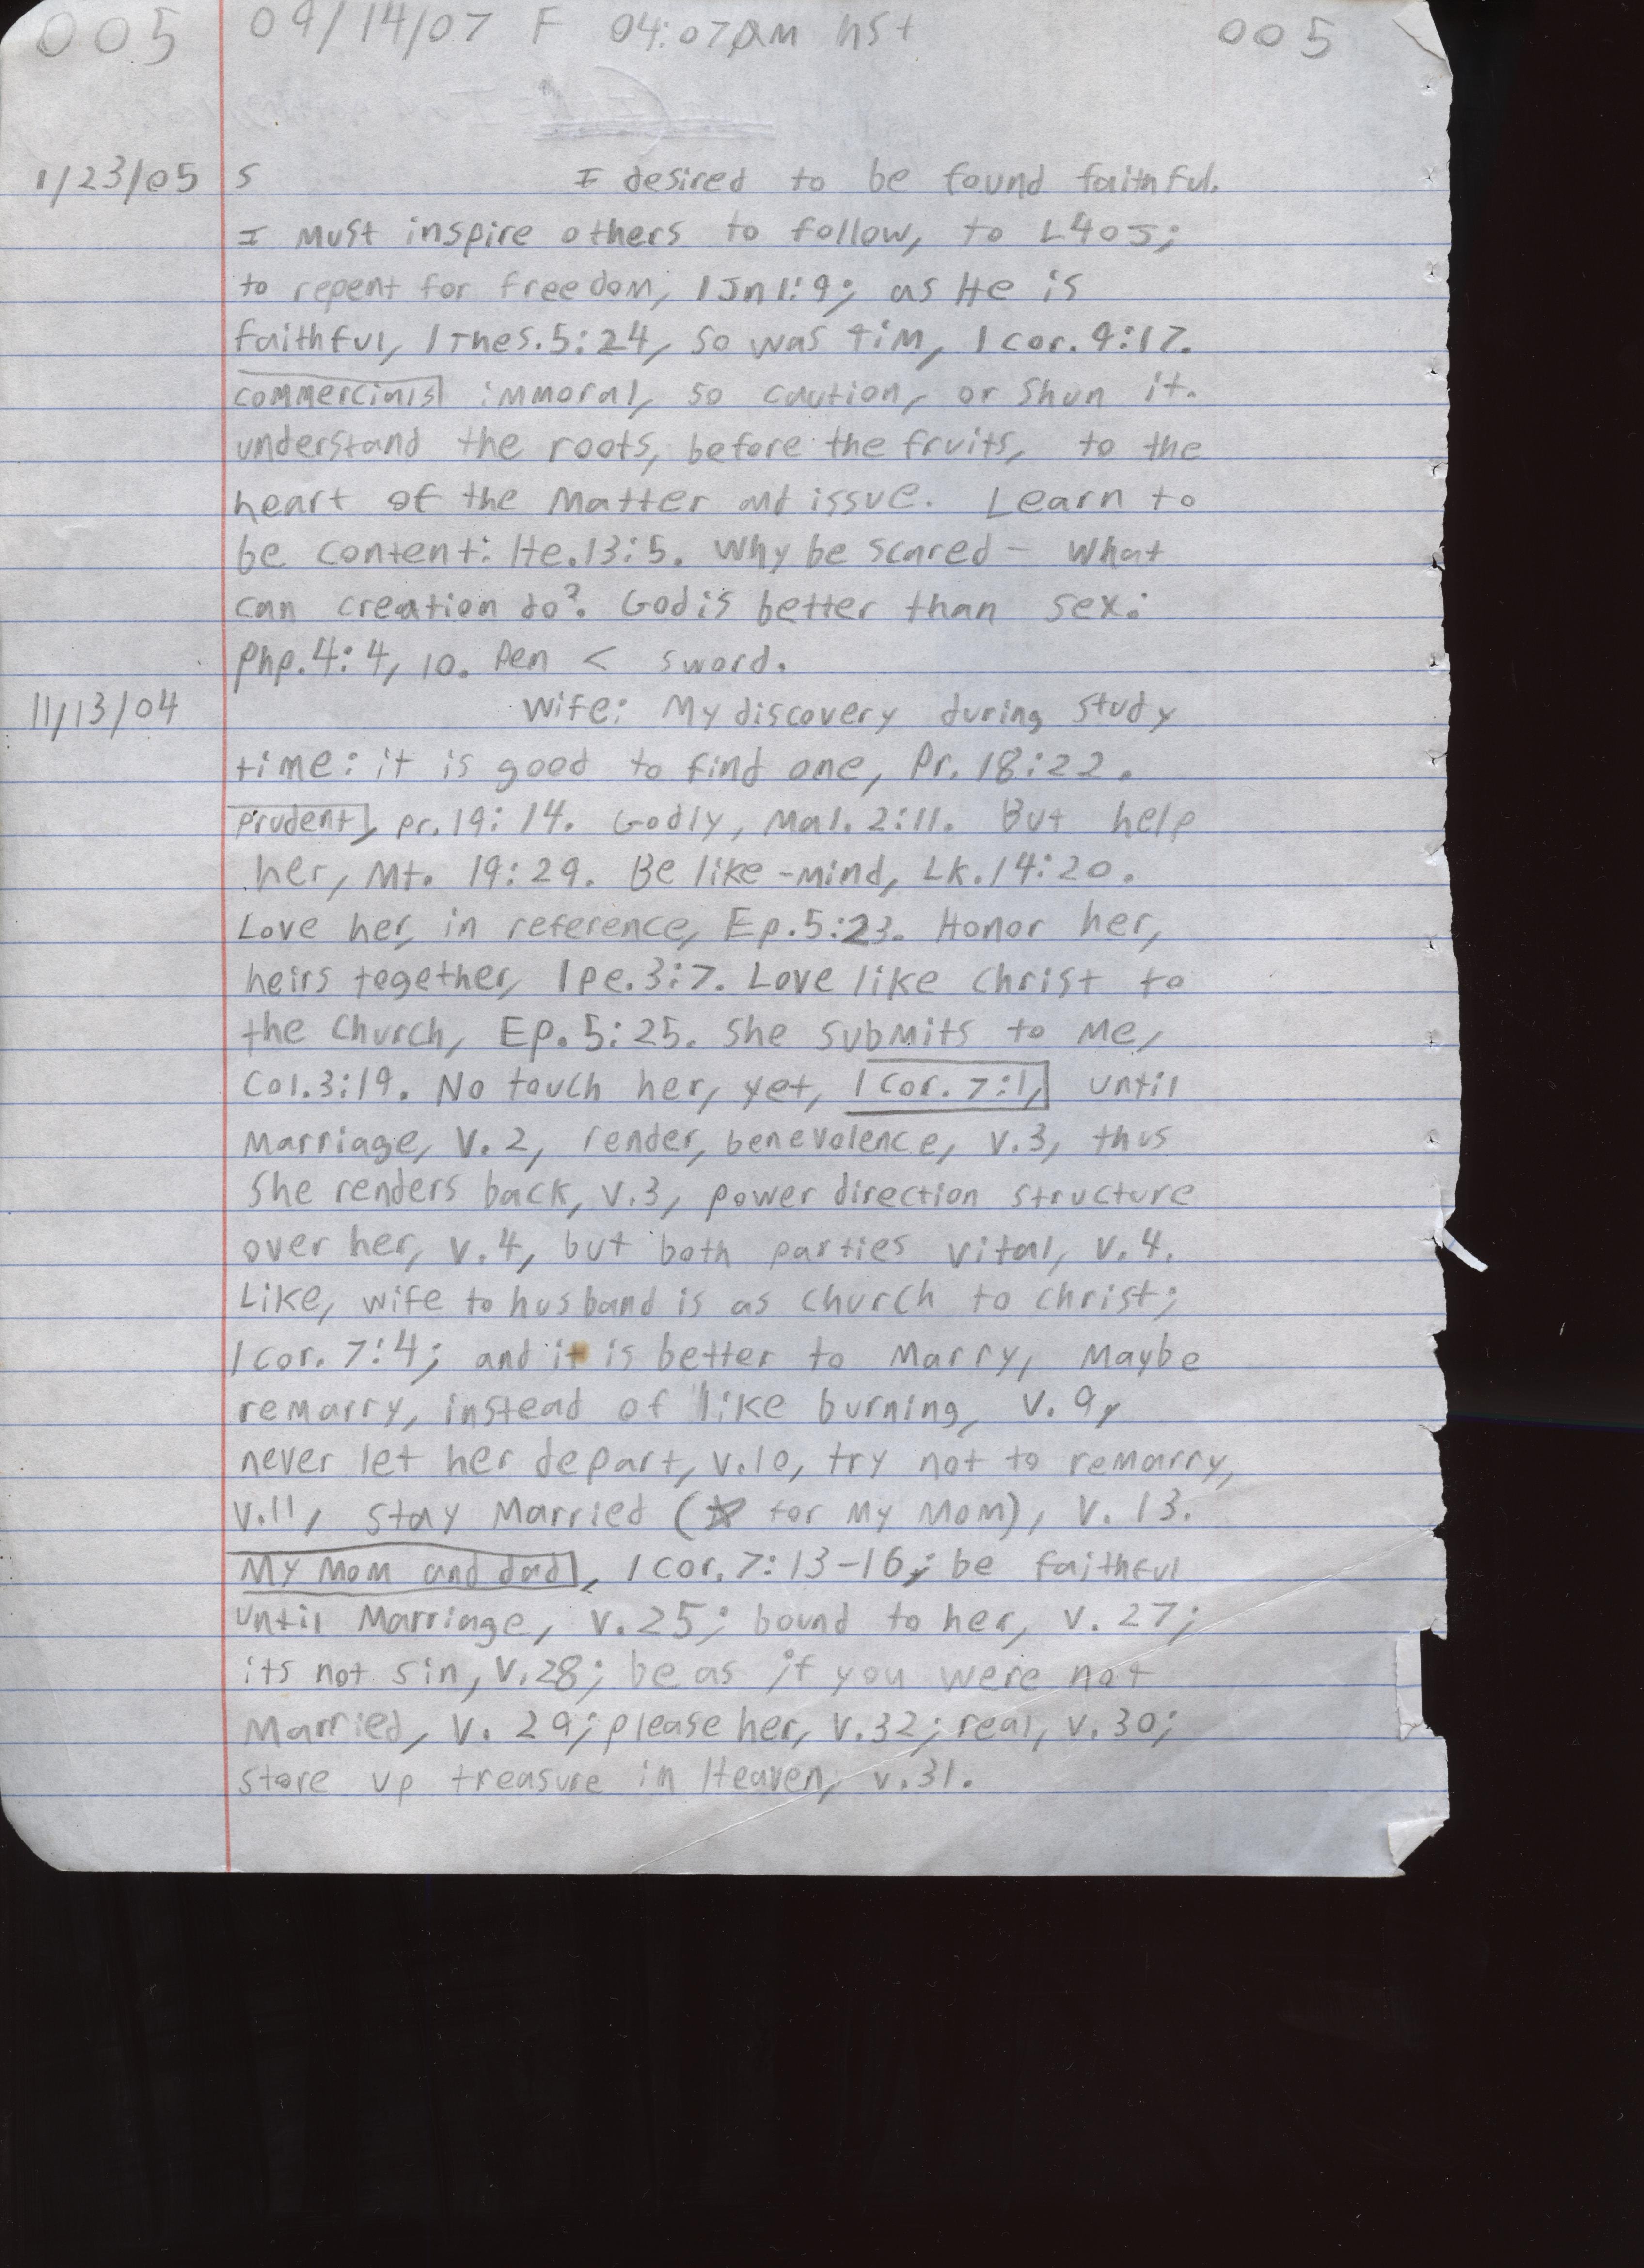 005 09/14/07 F 04:07AM hst 005
1/23/05 S I desired to be found faithful.
I must inspire others to follow, to L4OJ;
to repent for freedom, 1Jn1:9; as He is
faithful, 1Thes.5:24, so was Tim, 1 cor. 9:17.
commercials immoral, so caution, or shun it.
understand the roots, before the fruits, to the
heart of the matter and issue. Learn to
be content: He.13:5. Why be scared - what
can creation do? God is better than sex:
Php.4:4, 10. Pen < sword.
11/13/04 Wife: My discovery during study
time: it is good to find one, Pr. 18:22.
Prudent, pr. 19:14. Godly, Mal. 2:11. But help
her, Mt. 19:29. Be like-mind, Lk.14:20.
Love her, in reference, Ep.5:23. Honor her,
heirs together, 1pe.3:7. Love like Christ to
the Church, Ep. 5:25. She submits to me,
Col.3:19. No touch her, yet, 1 cor. 7:1, until
marriage, v.2, render, benevolence, v.3, thus
she renders back, v.3, power direction structure
over her, v.4, but both parties vital, v.4.
Like, wife to husband is as church to christ;
1 cor. 7:4; and it is better to marry, maybe
remarry, instead of like burning, v. 9,
never let her depart, v.10, try not to remarry,
v.11, stay married (☆ for my mom), v. 13.
My mom and dad, 1 cor. 7:13-16; be faithful
until marriage, v.25; bound to her, v. 27;
its not sin, v.28; be as if you were not
married, v. 29; please her, v.32; real, v.30;
store up treasure in Heaven, v.31.